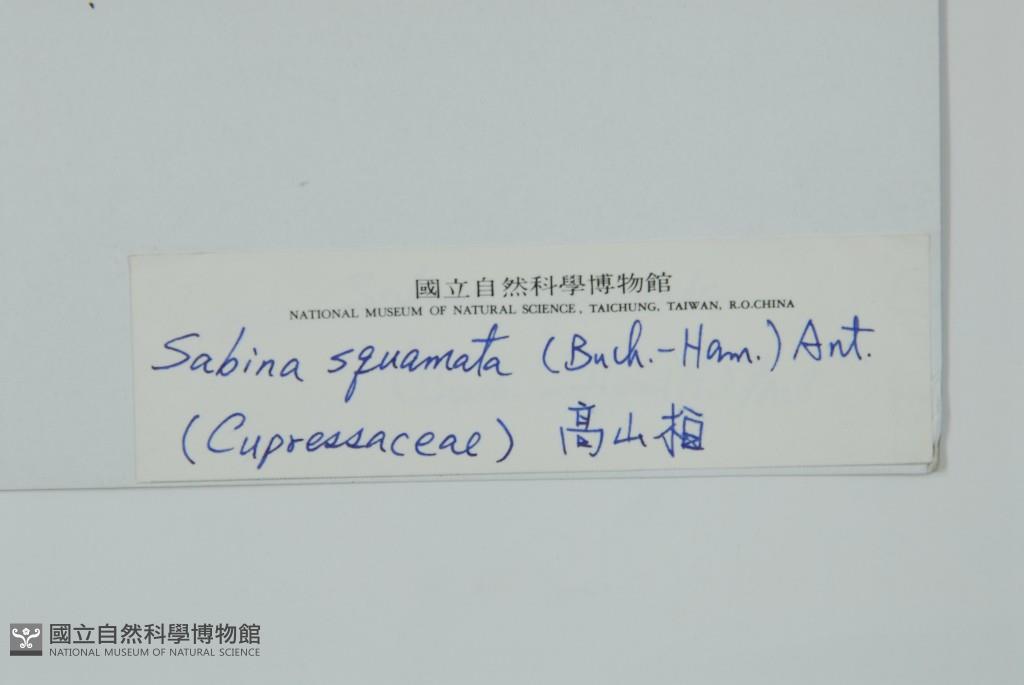 國立自然科學博物館
NATIONAL MUSEUM OF NATURAL SCIENCE, TAICHUNG, TAIWAN, R.O.CHINA
Sabina squamata (Buch.-Ham.) Ant.
(Cupressaceae) 高山柏
國立自然科學博物館
NATIONAL MUSEUM OF NATURAL SCIENCE